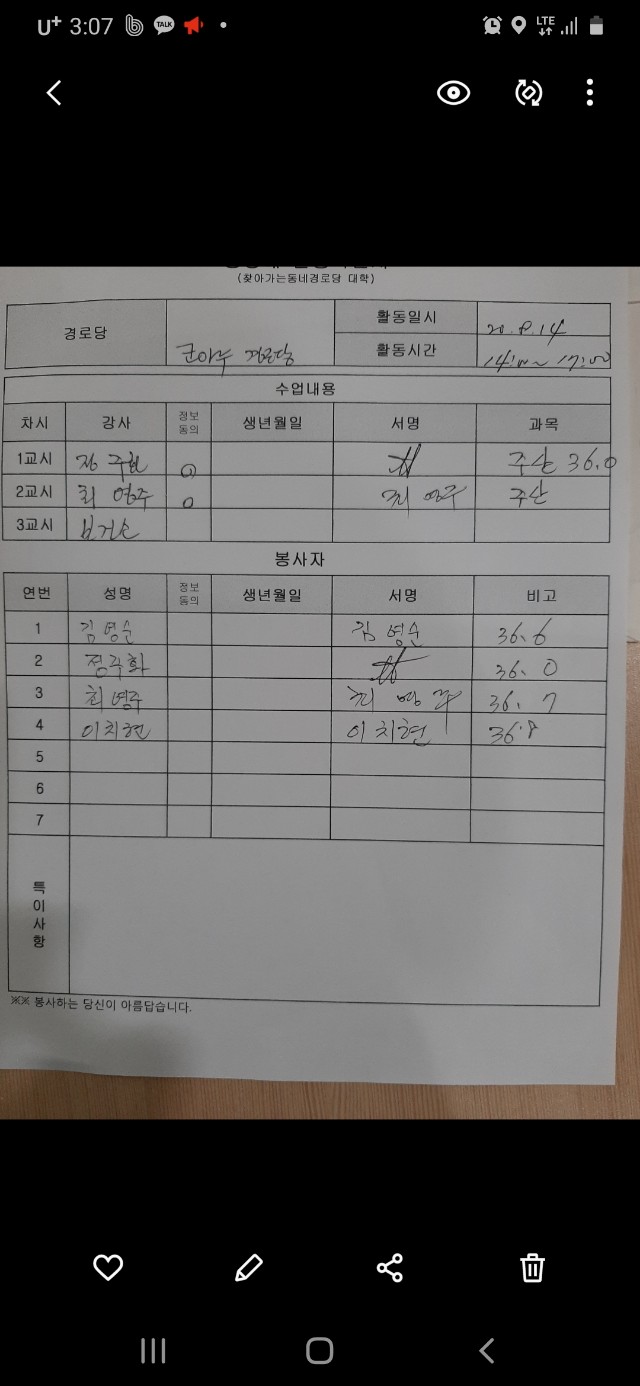 U+ 3:07 TALK LTE
(찾아가는동네경로당 대학)
경로당 경로당 활동일시 20.8.14
활동시간 14:00~17:00
수업내용
차시 강사 정보동의 생년월일 서명 과목
1교시 0 주산 36.0
2교시 최영주 0 최영주 주산
3교시
봉사자
연번 성명 정보동의 생년월일 서명 비고
1 김영순 김영순 36.6
2 정주화 36.0
3 최영주 최영주 36.7
4 이치현 이치현 36.8
5
6
7
특이사항
※※ 봉사하는 당신이 아름답습니다.